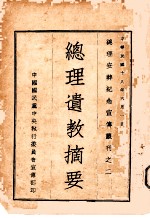 中華民國十八年六月一日
總理安葬紀念宣傳叢刊之二
總理遺教摘要
中國國民黨中央執行委員會宣傳部印